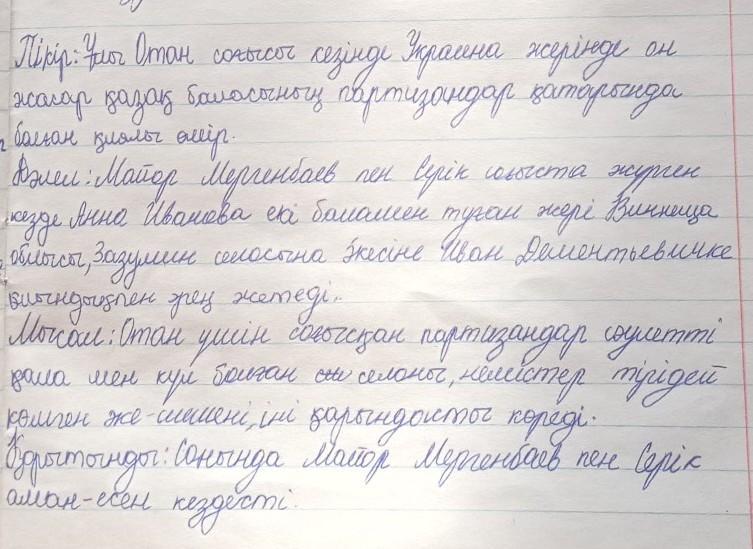 Пікір: Ұлы Отан соғысы кезінде Украина жерінде он
жасар қазақ баласының партизандар қатарында
болған қиялы өмір.
Дәлел: Майор Мергенбаев пен Серік соғыста жүрген
кезде Анна Ивановa екі баламен туған жері Винница
облысы, Зазулин селосына әкесіне Иван Дементьевичке
қиындықпен әрең жетеді.
Мысал: Отан үшін соғысқан партизандар сәулетті
қала мен күл болған селоны, немістер тірідей
көмген же-шешені, іні қарындасты көреді.
Қорытынды: Соңында Майор Мергенбаев пен Серік
аман-есен кездесті.